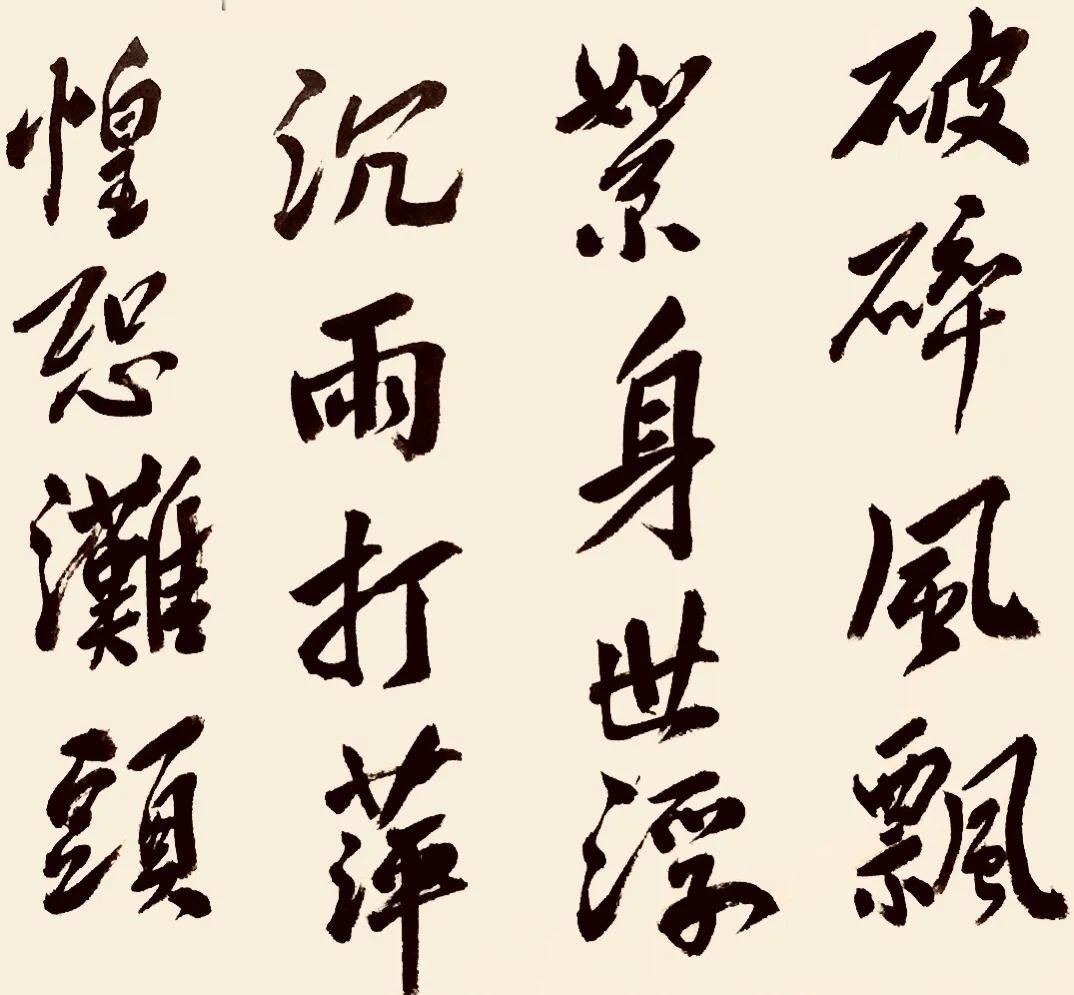 破碎風飄
絮身世浮
沉雨打萍
惶恐灘頭